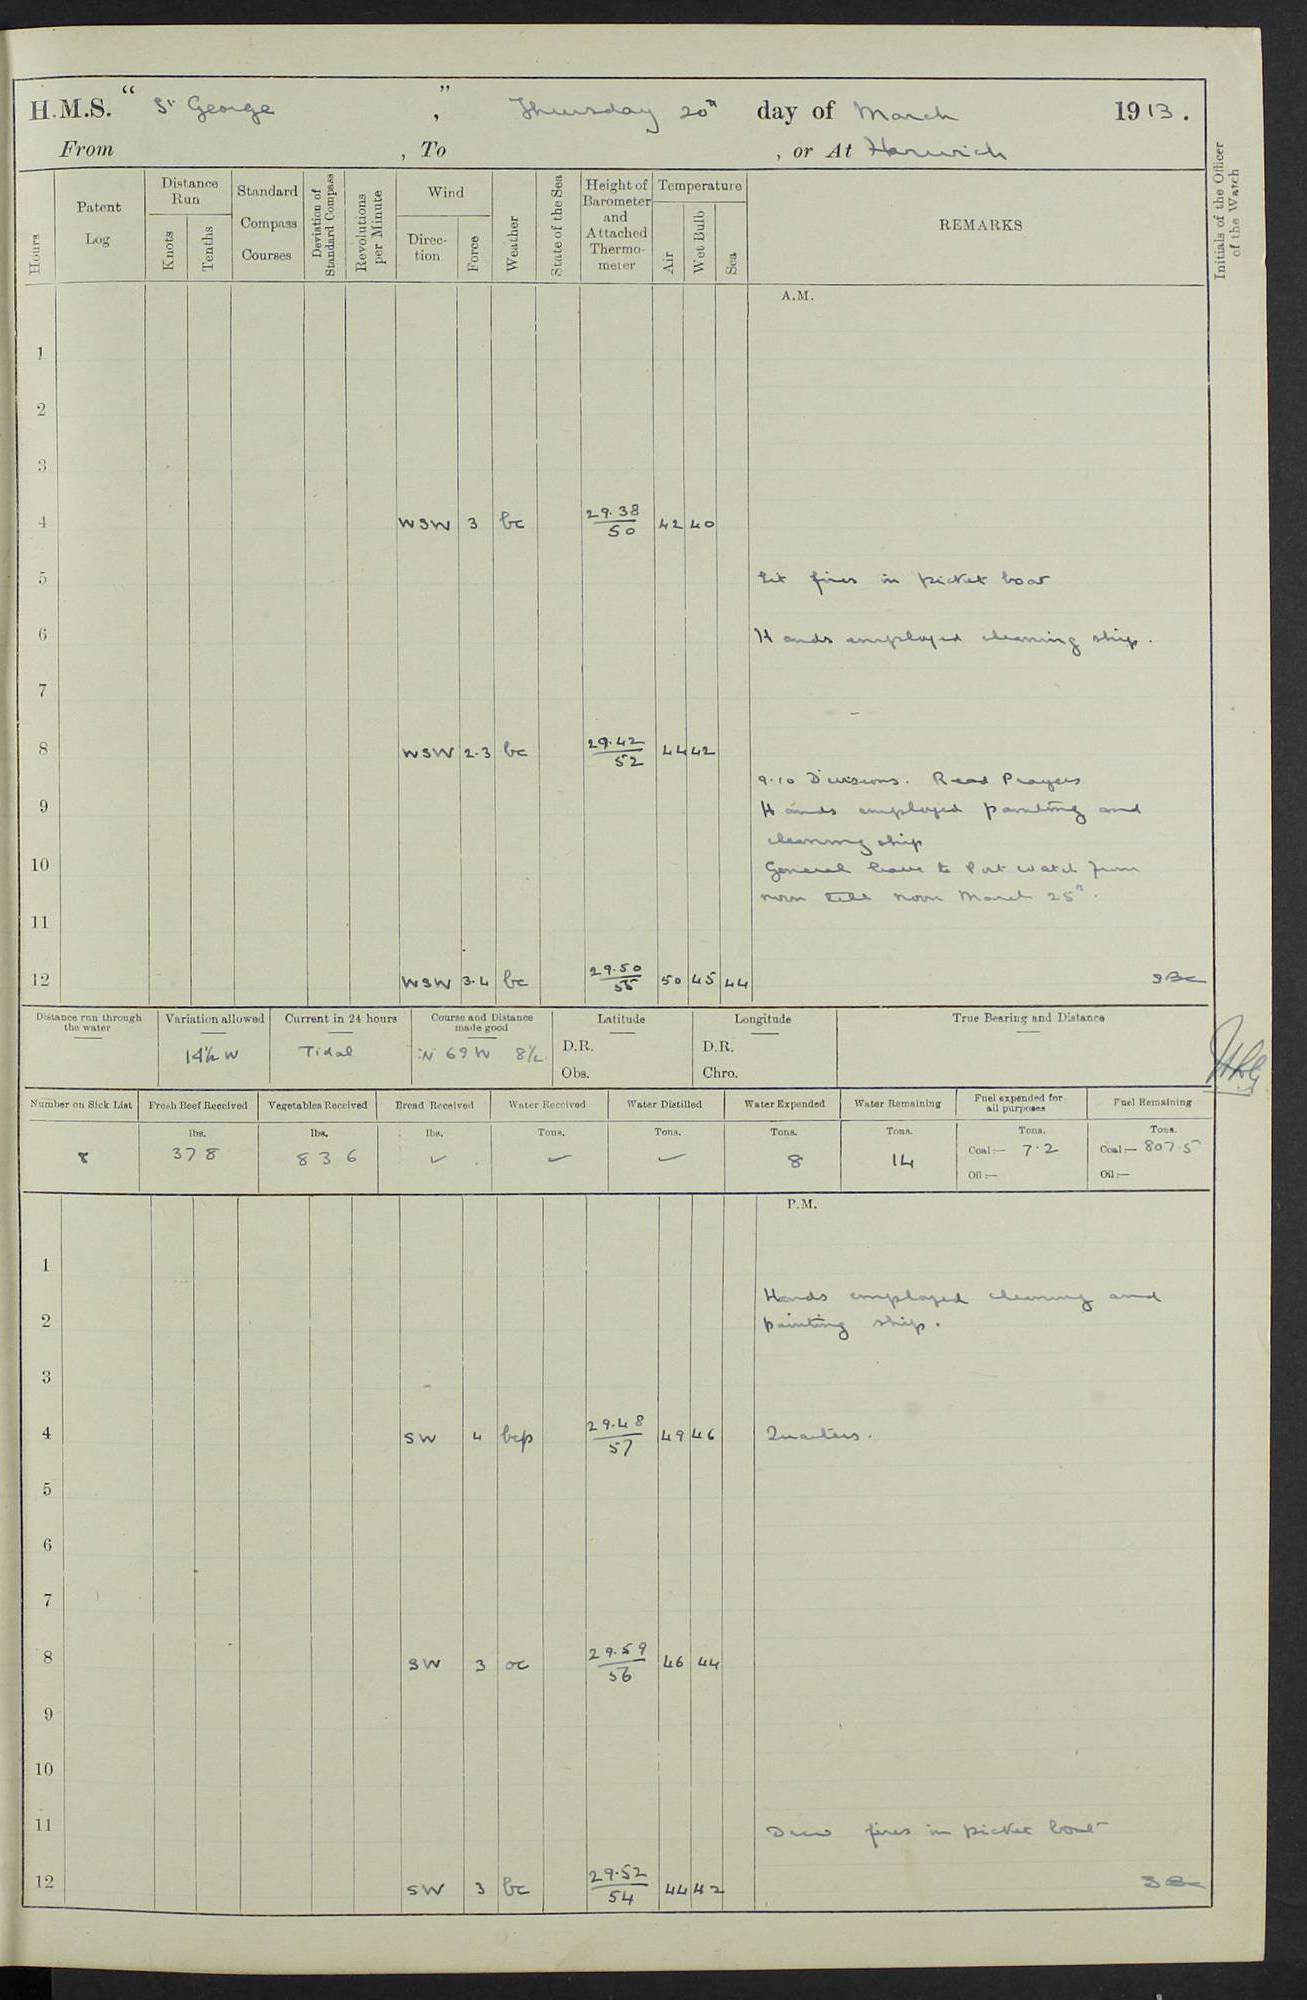 H.M.S. " St George ", Thursday 20th day of March 1913.
From , To , or At Harwich
Hours
Patent Log
Distance Run
Knots
Tenths
Standard Compass Courses
Deviation of Standard Compass
Revolutions per Minute
Wind
Direc-tion
Force
Weather
State of the Sea
Height of Barometer and Attached Thermo-meter
Temperature
Air
Wet Bulb
Sea
REMARKS
Initials of the Officer of the Watch
A.M.
1
2
3
4 WSW 3 bc 29.38/50 42 40
5 Lit fires in picket boat
6 Hands employed cleaning ship.
7
8 WSW 2.3 bc 29.42/52 44 42
9.10 Divisions. Read Prayers
9 Hands employed painting and
cleaning ship
10 General leave to Port watch from
noon till noon March 25th.
11
12 WSW 3.4 bc 29.50/55 50 45 44
Distance run through the water
Variation allowed 14½ W
Current in 24 hours Tidal
Course and Distance made good N 69 W 8½
Latitude
D.R.
Obs.
Longitude
D.R.
Chro.
True Bearing and Distance
Number on Sick List 8
Fresh Beef Received lbs. 378
Vegetables Received lbs. 836
Bread Received lbs. ✓
Water Received Tons. ✓
Water Distilled Tons. ✓
Water Expended Tons. 8
Water Remaining Tons. 14
Fuel expended for all purposes Tons. Coal:— 7.2
Oil:—
Fuel Remaining Tons. Coal:— 807.5
Oil:—
P.M.
1
Hands employed cleaning and
2 painting ship.
3
4 SW 4 bcp 29.48/57 49 46 Quarters.
5
6
7
8 SW 3 oc 29.59/56 46 44
9
10
11 Drew fires in picket boat
12 SW 3 bc 29.52/54 44 42